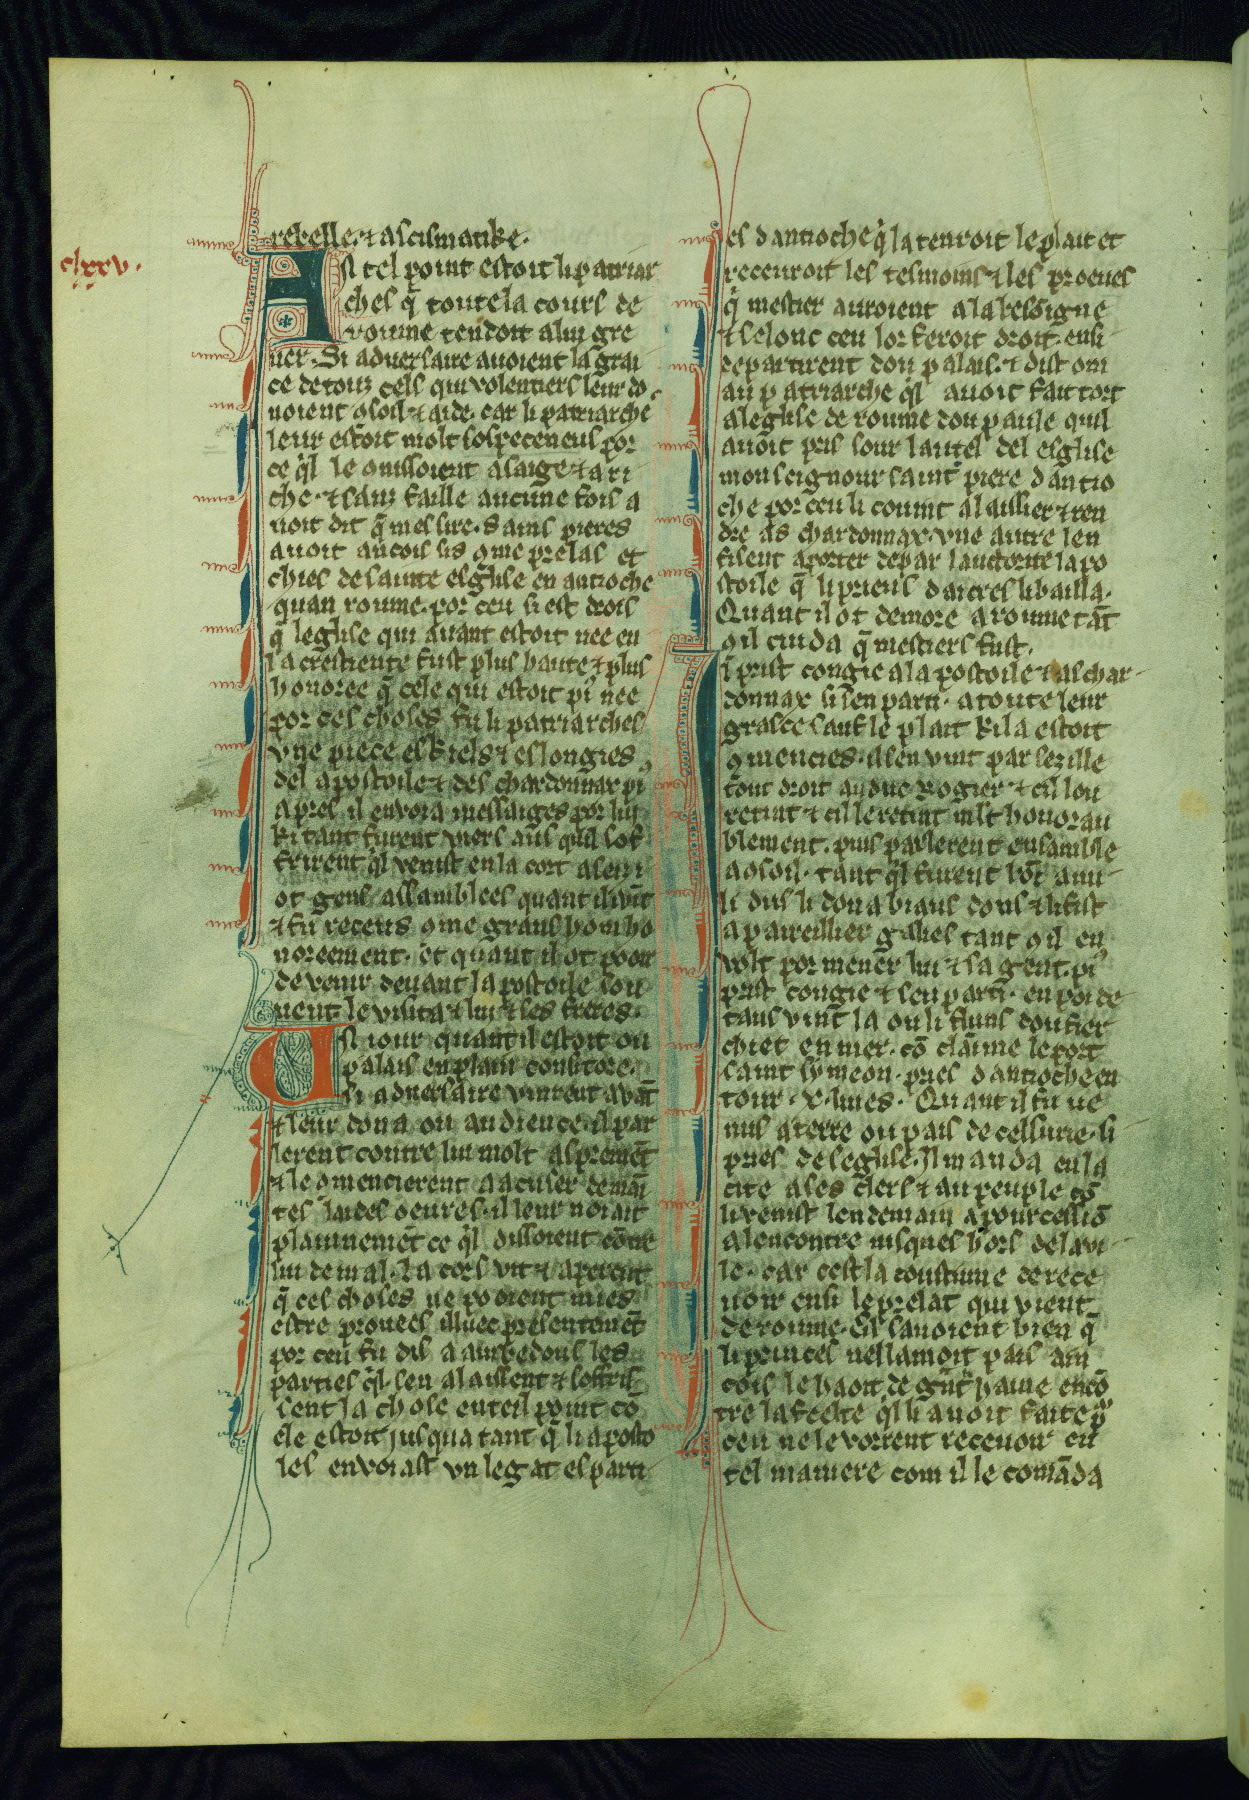 clxxv.
rebelle. ⁊ a scismatike.
A sı tel point estoit li patriar
ches q̃ toute la cours de
roume tendoit a lui gre
uer. Si aduersaire auoient la grai
ce de touz cels qui volentiers leur do
noient ɔsoil ⁊ aide. car li patriarche
leur estoit molt sospeceneus por
ce q̾l le ɔnissoient a saige ⁊ a ri
che. ⁊ sanz faille aucune fois a
uoit dit q̃ mes sire. Sains pieres
auoit ancois sis ɔme prelas et
chies de sainte esglise en antioche
quan roume. por ceu si est drois
q̃ leglise qui auant estoit nee en
la crestiente fust plus haute ⁊ plus
honoree q̃ cele qui estoit pĩ nee
por ces choses fu li patriarches
vne piece eskiels ⁊ eslongies
del apostoile ⁊ des chardonnax pĩ
apres il enuoia messaiges por lui
ki tant furent viers aus quil sof
frirent q̾l venist en la cort a len i
ot gens assamblees quant il vĩt
⁊ fu receus ɔme grans hom ho
noreement. et quant il ot pooir
de venir deuant lapostoile sou
uent le visita ⁊ lui ⁊ ses freres.
U st iour quant il estoit ou
palais en plain consitore.
si aduersaire vinrent auãt
⁊ leur dona on audience. il par
lerent contre lui molt aspremẽt
⁊ le ɔmencierent a acuser de mãi
tes laides oeures. il leur noiait
plainnemẽt ce q̾l dissoient cõtre
lui de mal. La cors vit ⁊ aperent
q̃ ces choses ne pooient mies
estre prouees illuec presentemẽt
por ceu fu dis a ambedous les
parties q̾l sen alaissent ⁊ soffris
sent la chose en teil point cõ
ele estoit jusqua tant q̃ li aposto
les enuoiast vn legat es parti
es dantioche q̾ la tenroit le plait et
receuroit les tesmoins ⁊ les proeues
q̃ mestier auroient a la besoigne
⁊ selonc ceu lor feroit droit. ensi
departirent dou palais. ⁊ dist on
au patriarche q̾l auoit fait tort
a leglise de roume dou paule quil
auoit pris sour lautel del esglise
monseignour saint piere dantio
che por ceu li couint a laissier ⁊ ren
dre as chardonnax. vne autre len
fisent aporter de par lauctorite lapo
stoile q̃ li prieus daicres li bailla.
Quant il ot demore a roume tãt
ɔ il cuida q̃ mestiers fust.
I l prist congie a lapostoile ⁊ as char-
donnax si sen parti. a toute leur
grasce sauf le plait ki la estoit
ɔmencies. il sen vint par sezille
tout droit au duc Rogier ⁊ cil lou
retint ⁊ cil le retint mlt honorau
blement. puis parlerent ensamble
a ɔsoil. tant q̾l furent bõ ami
li dus li dona biaus dons ⁊ li fist
apaireillier galies tant ɔ il en
volt por mener lui ⁊ sa gent. pĩ
prist congie ⁊ sen parti. en poi de
tans vint la ou li fluns dou fier
chiet en mer. cõ claime le port
saint symeon. pres dantioche en
tour. x. liues. Quant il fu ve
nus a terre ou pais de cellurie. li
pres de leglise. Il manda en la
cite a ses clers ⁊ au peuple cõ
li venist lendemain a pourcessiõ
a lencontre iusques hors de la vi
le. car cest la coustume de rece
uoir ensi le prelat qui vient
de roume. Cil sauoient bien q̃
li princes nes lamoit pais ain
cois le haoit de gñt haine encõ
tre la feelte q̾l li auoit faite p̾
ceu ne le vorrent receuoir en
tel maniere com il le comãda